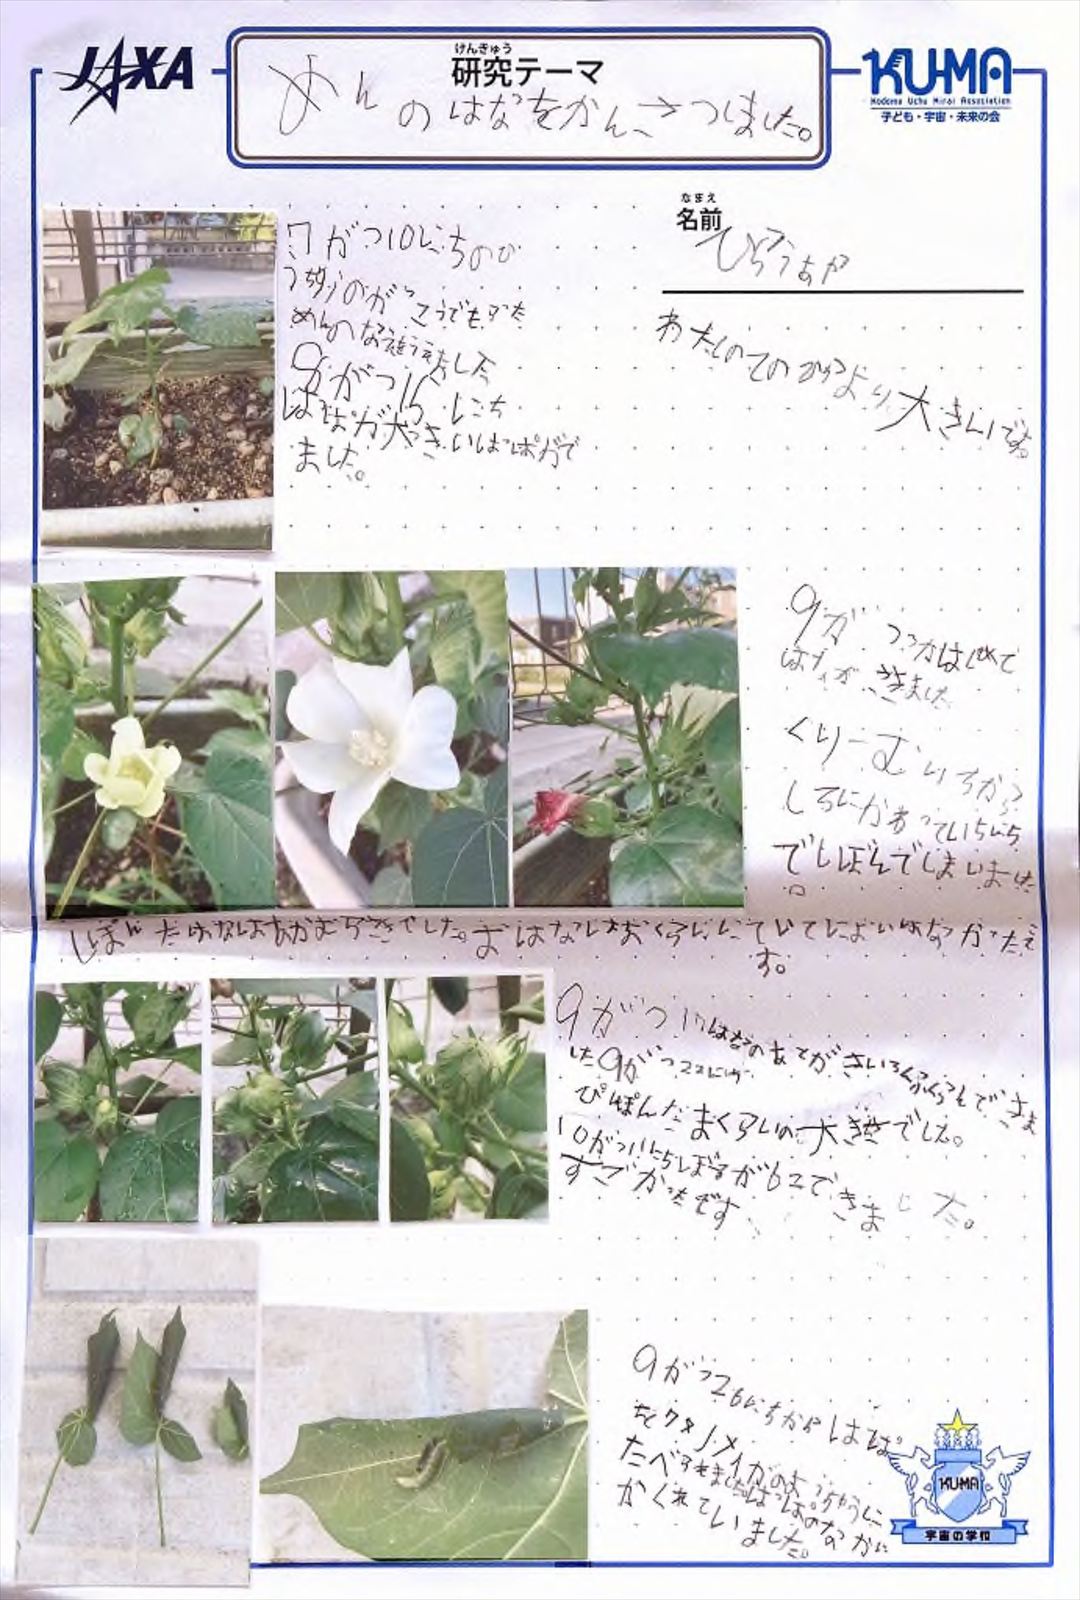 JAXA
けんきゅう
研究テーマ
めんのはなをかんさつしました。
KU-MA
Kodomo Uchu Mirai Association
子ども・宇宙・未来の会
なまえ
名前
7がつ10にちの
うちゅうのがっこうでもらった
めんのなえをうえました
8がつ16にち
はっぱが大きいはっぱがで
ました。
わたしのての
より大きいです。
9がつ
はじめて
はながさきました
くりーむいろから
しろにかわっていちにち
でしぼんでしまいました
。
しぼんだはなはあかむらさきでした。おはなはおくらににていて
す。
9がつ17はなのあとがきいろくふくらんできま
した9がつ22にち
ぴんぽんだまくらいの大きさでした。
10がつ11にち
が62できました。
すごかったです
9がつ26にちからはっぱ
をワタノメイガのようちゅうに
たべられました。はっぱのなかに
かくれていました。
KU-MA
宇宙の学校